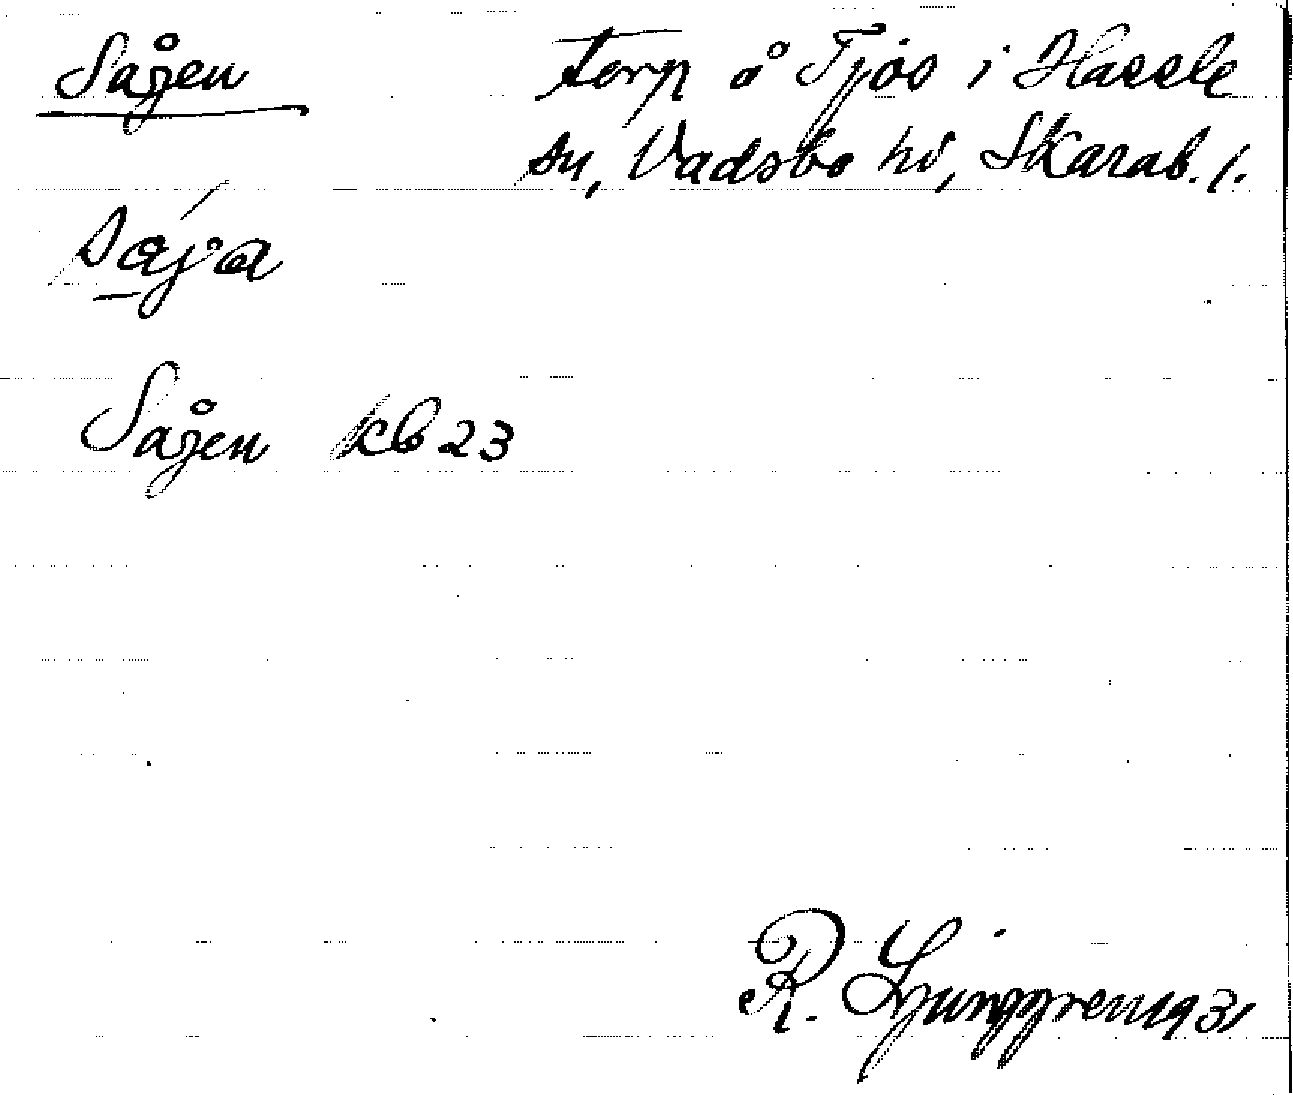 Sågen torp å Tjos i Hassle
sn, Vadsbo hd, Skarab. l.
Sågen kb 23
R. Ljunggren 1931